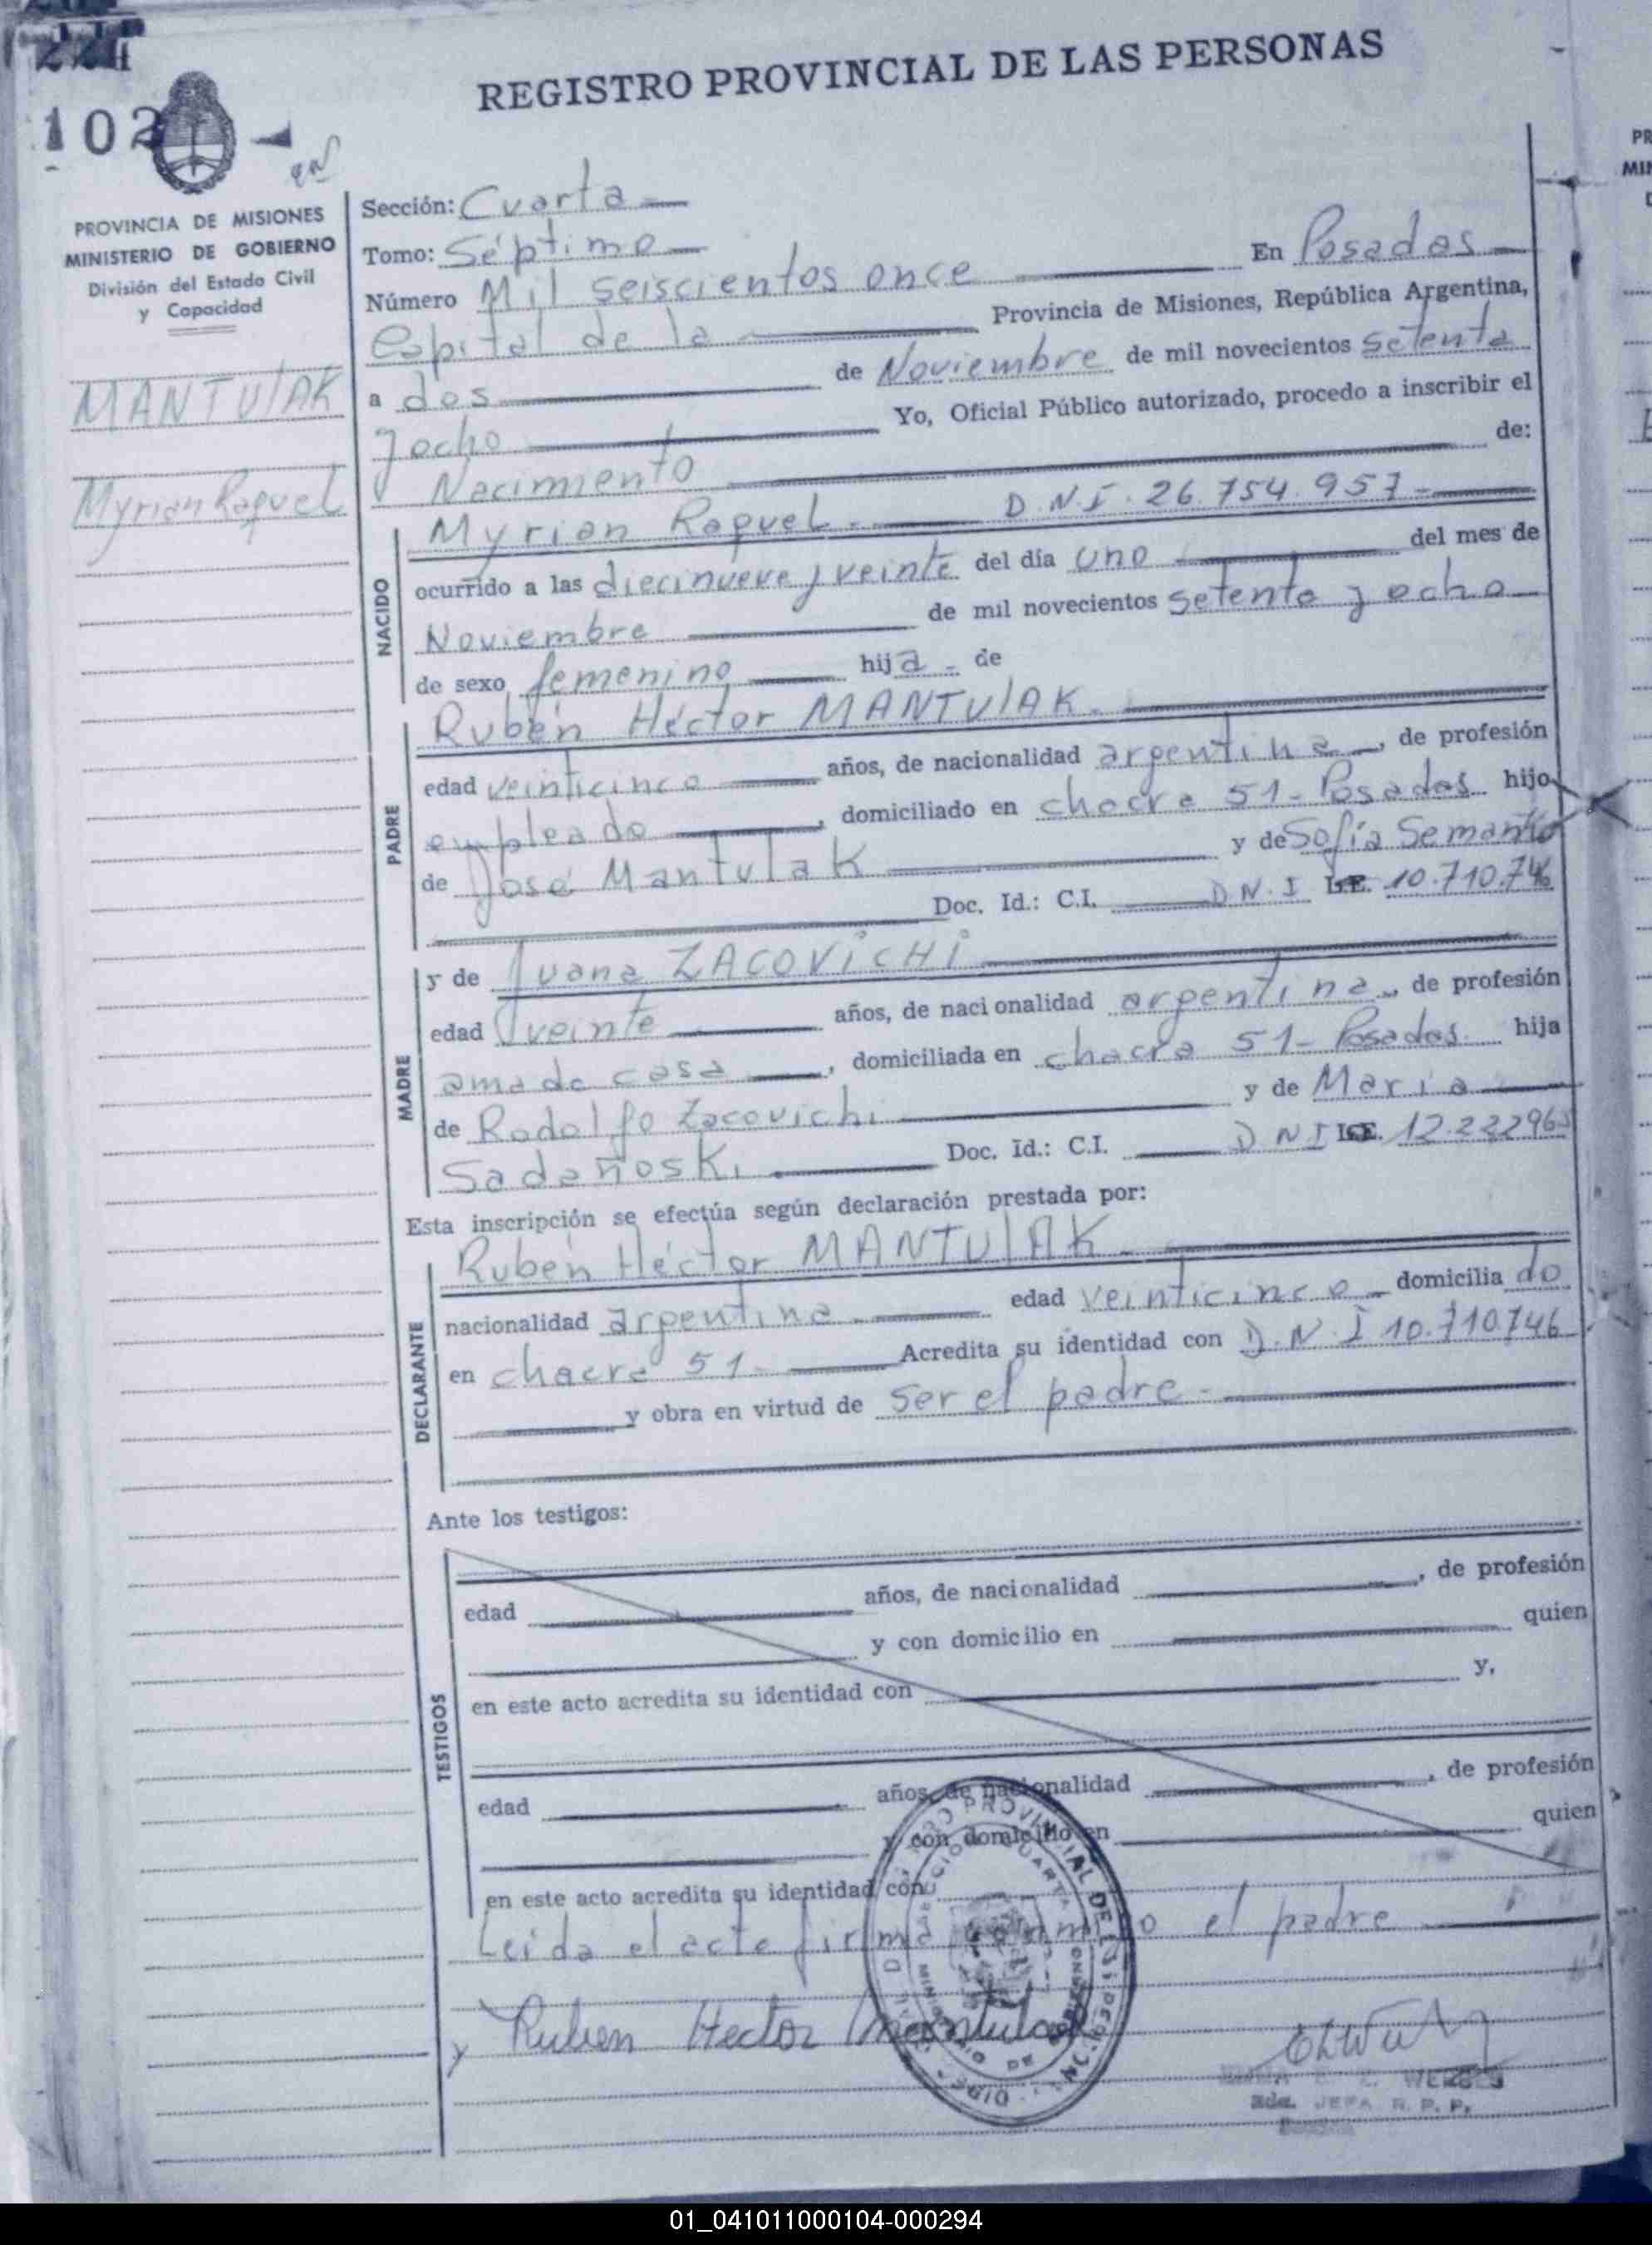 REGISTRO PROVINCIAL DE LAS PERSONAS
102
PROVINCIA DE MISIONES
MINISTERIO DE GOBIERNO
División del Estado Civil
y Capacidad
MANTULAK
Myrian Raquel
Sección: Cuarta
Tomo: Séptimo
Número Mil seiscientos once En Posadas
Capital de la Provincia de Misiones, República Argentina,
a dos de Noviembre de mil novecientos setenta
y ocho Yo, Oficial Público autorizado, procedo a inscribir el
Nacimiento de:
NACIDO
Myrian Raquel. D.N.I. 26.754.957-
ocurrido a las diecinueve y veinte del día uno del mes de
Noviembre de mil novecientos setenta y ocho
de sexo femenino hija - de
PADRE
Rubén Héctor MANTULAK.
edad veinticinco años, de nacionalidad argentina, de profesión
empleado, domiciliado en chacra 51- Posadas hijo
de José Mantulak y de Sofía Semanko
Doc. Id.: C.I. D.N.I L.E. 10.710.746
MADRE
y de Juana ZACOVICHI
edad veinte años, de nacionalidad argentina, de profesión
ama de casa, domiciliada en chacra 51- Posadas. hija
de Rodolfo Zacovichi y de María
Sadañoski. Doc. Id.: C.I. D N I L.C.E. 12.222965
Esta inscripción se efectúa según declaración prestada por:
DECLARANTE
Rubén Héctor MANTULAK.
nacionalidad argentina edad veinticinco domicilia do
en chacra 51- Acredita su identidad con D.N.I 10.710.746
y obra en virtud de ser el padre.-
Ante los testigos:
TESTIGOS
edad años, de nacionalidad , de profesión
y con domicilio en quien
en este acto acredita su identidad con y,
edad años, de nacionalidad , de profesión
y con domicilio en quien
en este acto acredita su identidad con
Leida el acta firma conmigo el padre
Ruben Hector Mantulak
WERBES
JEFA R. P. P.
01_041011000104-000294
PR
MIN